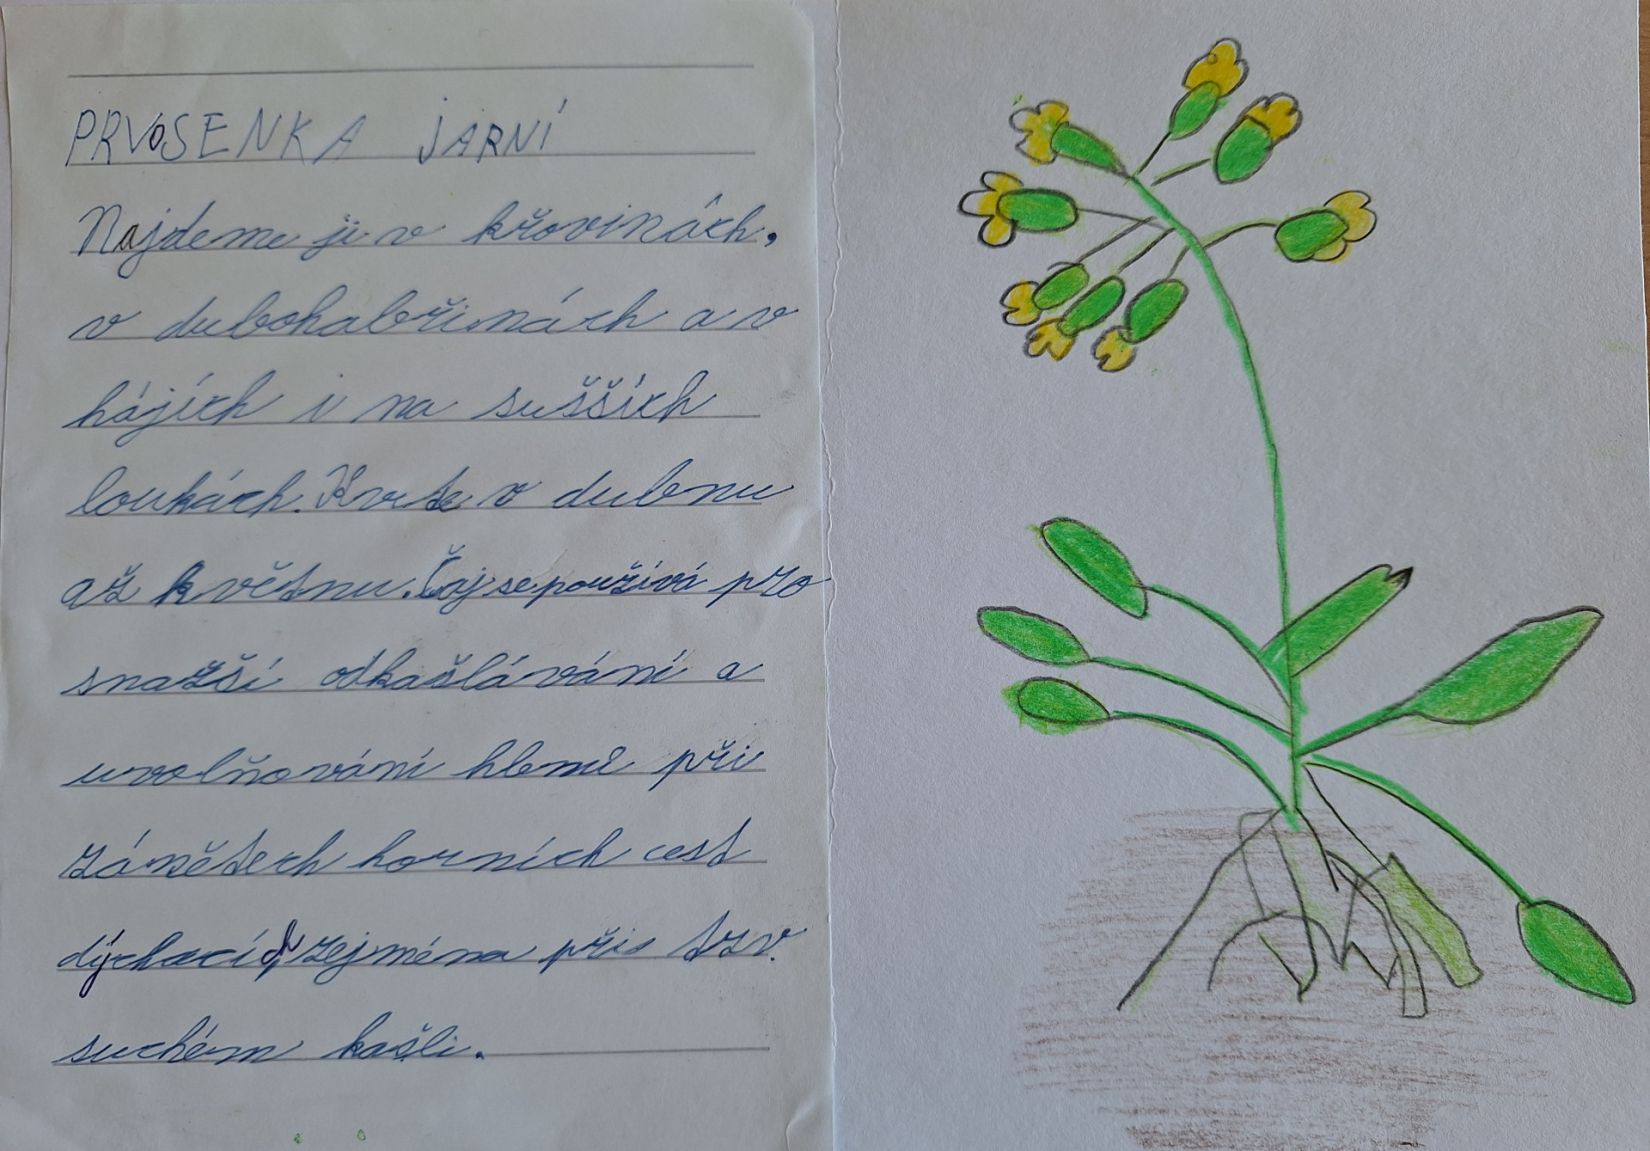 PRVOSENKA JARNÍ
Najdeme ji v křovinách,
v dubohabřinách a v
hájích i na sušších
loukách. Kvete v dubnu
až květnu. Čaj se používá pro
snažší odkašlávání a
uvolňování hlenů při
zánětech horních cest
dýchacích, zejména při tzv.
suchém kašli.